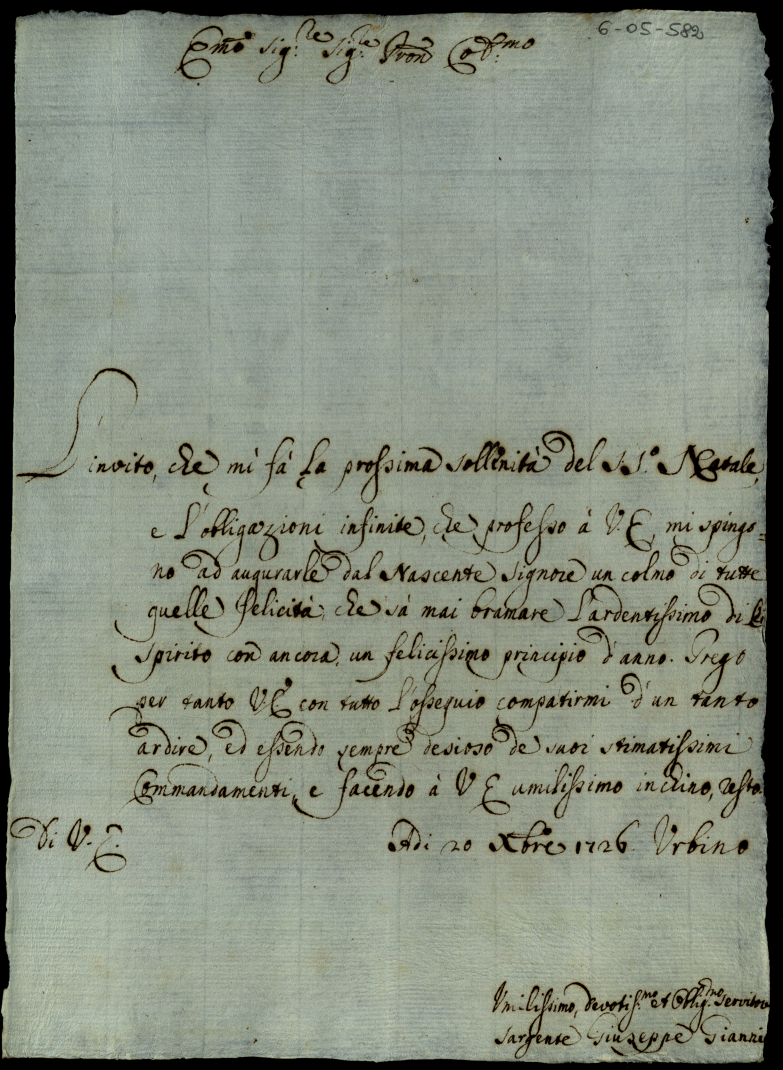 6-05-582
Emo Sig.re Sig.re Pron Colmo
L'invito, che mi fá la prossima sollenità del SS.o Natale,
e l'obligazioni infinite, che professo à V.E, mi spingo=
no ad augurarle dal Nascente Signore un colmo di tutte
quelle felicità, che sà mai bramare l'ardentissimo di Lei
spirito con ancora, un felicissimo principio d'anno. Prego
per tanto V.E con tutto l'ossequio compatirmi d'un tanto
ardire, ed essendo sempre desioso de suoi stimatissimi
Commandamenti, e facendo à V E umilissimo inchino, resto.
Di V. E.
Adi 20 Xbre 1726 Urbino
Umilissimo, devotis.mo et Oblig.mo Servitore
Sargente Giuseppe Gianni